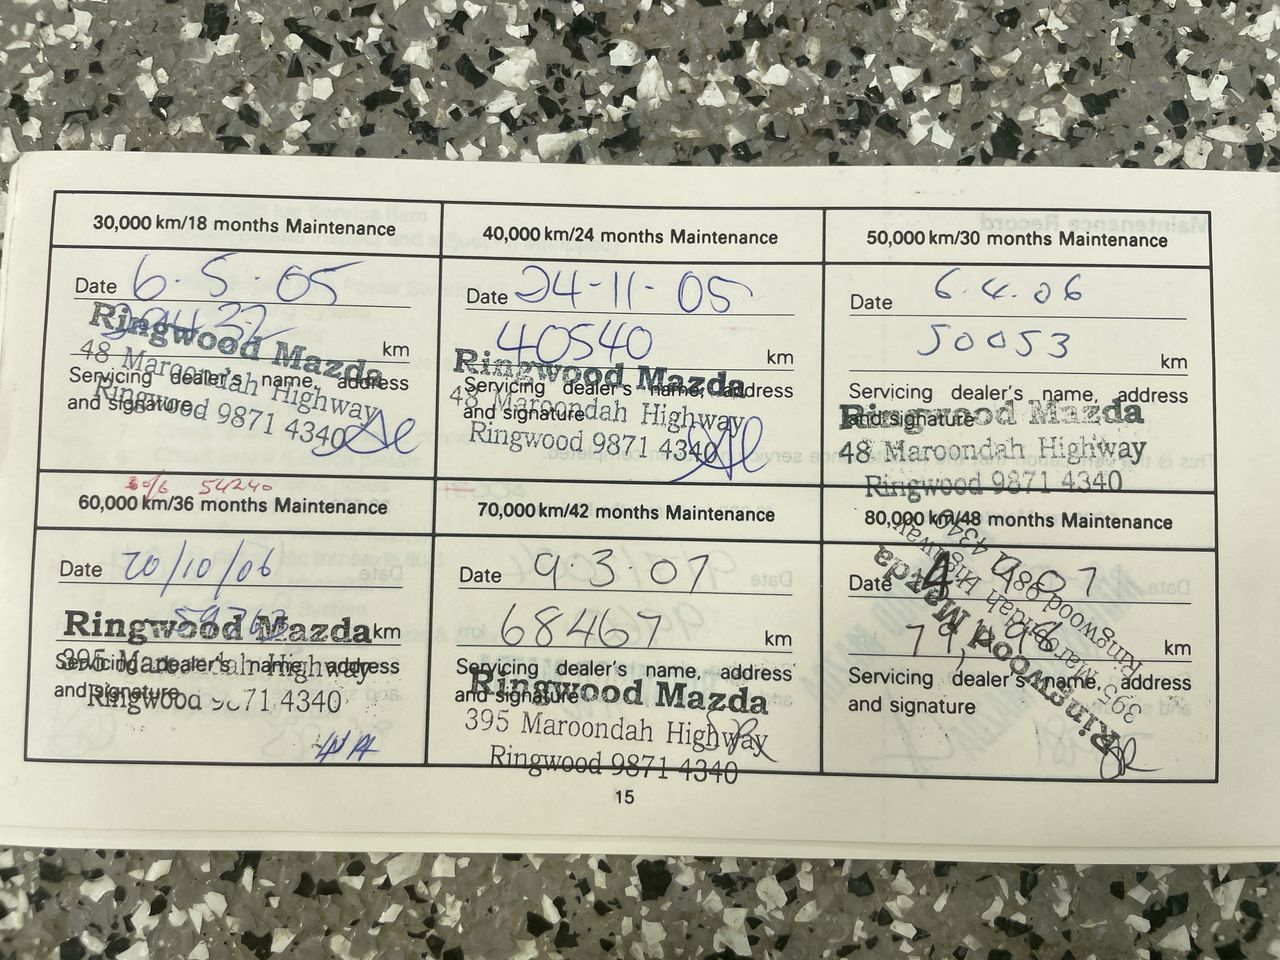 30,000 km/18 months Maintenance
Date 6.5.05
km
Servicing dealer's name, address
and signature
Ringwood Mazda
48 Maroondah Highway
Ringwood 9871 4340
40,000 km/24 months Maintenance
Date 24-11-05
40540 km
Servicing dealer's name, address
and signature
Ringwood Mazda
48 Maroondah Highway
Ringwood 9871 4340
50,000 km/30 months Maintenance
Date 6.4.06
50053 km
Servicing dealer's name, address
and signature
Ringwood Mazda
48 Maroondah Highway
Ringwood 9871 4340
54240
60,000 km/36 months Maintenance
Date 20/10/06
km
Servicing dealer's name, address
and signature
Ringwood Mazda
395 Maroondah Highway
Ringwood 9871 4340
70,000 km/42 months Maintenance
Date 9.3.07
68467 km
Servicing dealer's name, address
and signature
Ringwood Mazda
395 Maroondah Highway
Ringwood 9871 4340
80,000 km/48 months Maintenance
Date
km
Servicing dealer's name, address
and signature
Ringwood Mazda
395 Maroondah Highway
Ringwood 9871 4340
15